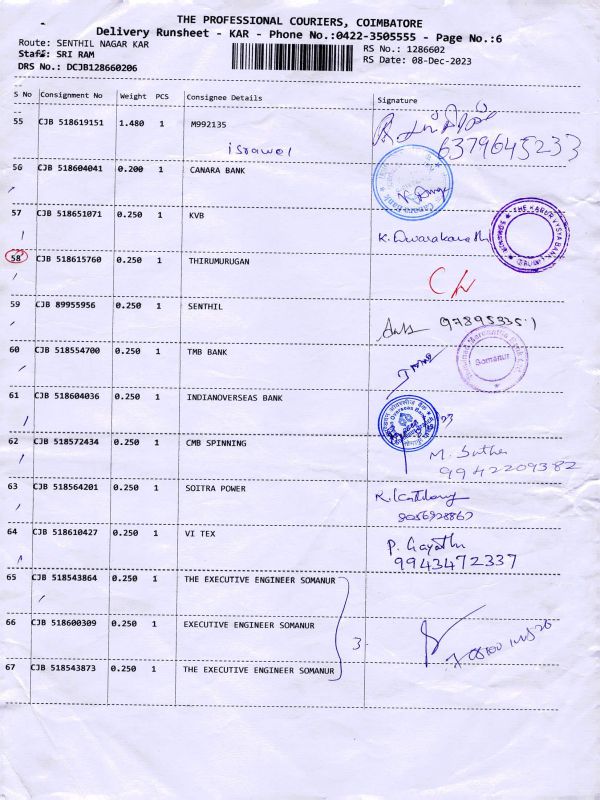 THE PROFESSIONAL COURIERS, COIMBATORE
Delivery Runsheet - KAR - Phone No.:0422-3505555 - Page No.:6
Route: SENTHIL NAGAR KAR
RS No.: 1286602
Staff: SRI RAM
RS Date: 08-Dec-2023
DRS No.: DCJB128660206
S No Consignment No Weight PCS Consignee Details Signature
55 CJB 518619151 1.480 1 M992135
6379645233
56 CJB 518604041 0.200 1 CANARA BANK
57 CJB 518651071 0.250 1 KVB
K. Dwarakanath
58 CJB 518615760 0.250 1 THIRUMURUGAN
59 CJB 89955956 0.250 1 SENTHIL
60 CJB 518554700 0.250 1 TMB BANK
Somanur
61 CJB 518604036 0.250 1 INDIANOVERSEAS BANK
62 CJB 518572434 0.250 1 CMB SPINNING
9942209382
63 CJB 518564201 0.250 1 SOITRA POWER
64 CJB 518610427 0.250 1 VI TEX
P. Gayathri
9943472337
65 CJB 518543864 0.250 1 THE EXECUTIVE ENGINEER SOMANUR
66 CJB 518600309 0.250 1 EXECUTIVE ENGINEER SOMANUR
3
67 CJB 518543873 0.250 1 THE EXECUTIVE ENGINEER SOMANUR